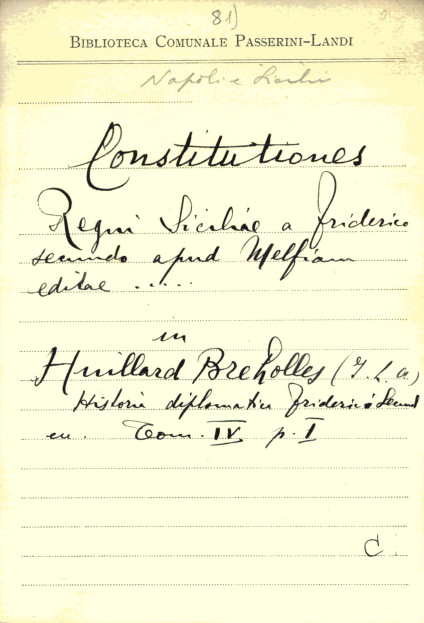 81)
BIBLIOTECA COMUNALE PASSERINI-LANDI
Napoli e Sicilia
Constitutiones
Regni Siciliae a Friderico
secundo apud Melfiam
editae .....
in
Huillard Breholles (J. L. A.)
Historia diplomatica Friderici Secund
Tom. IV p. I
C.